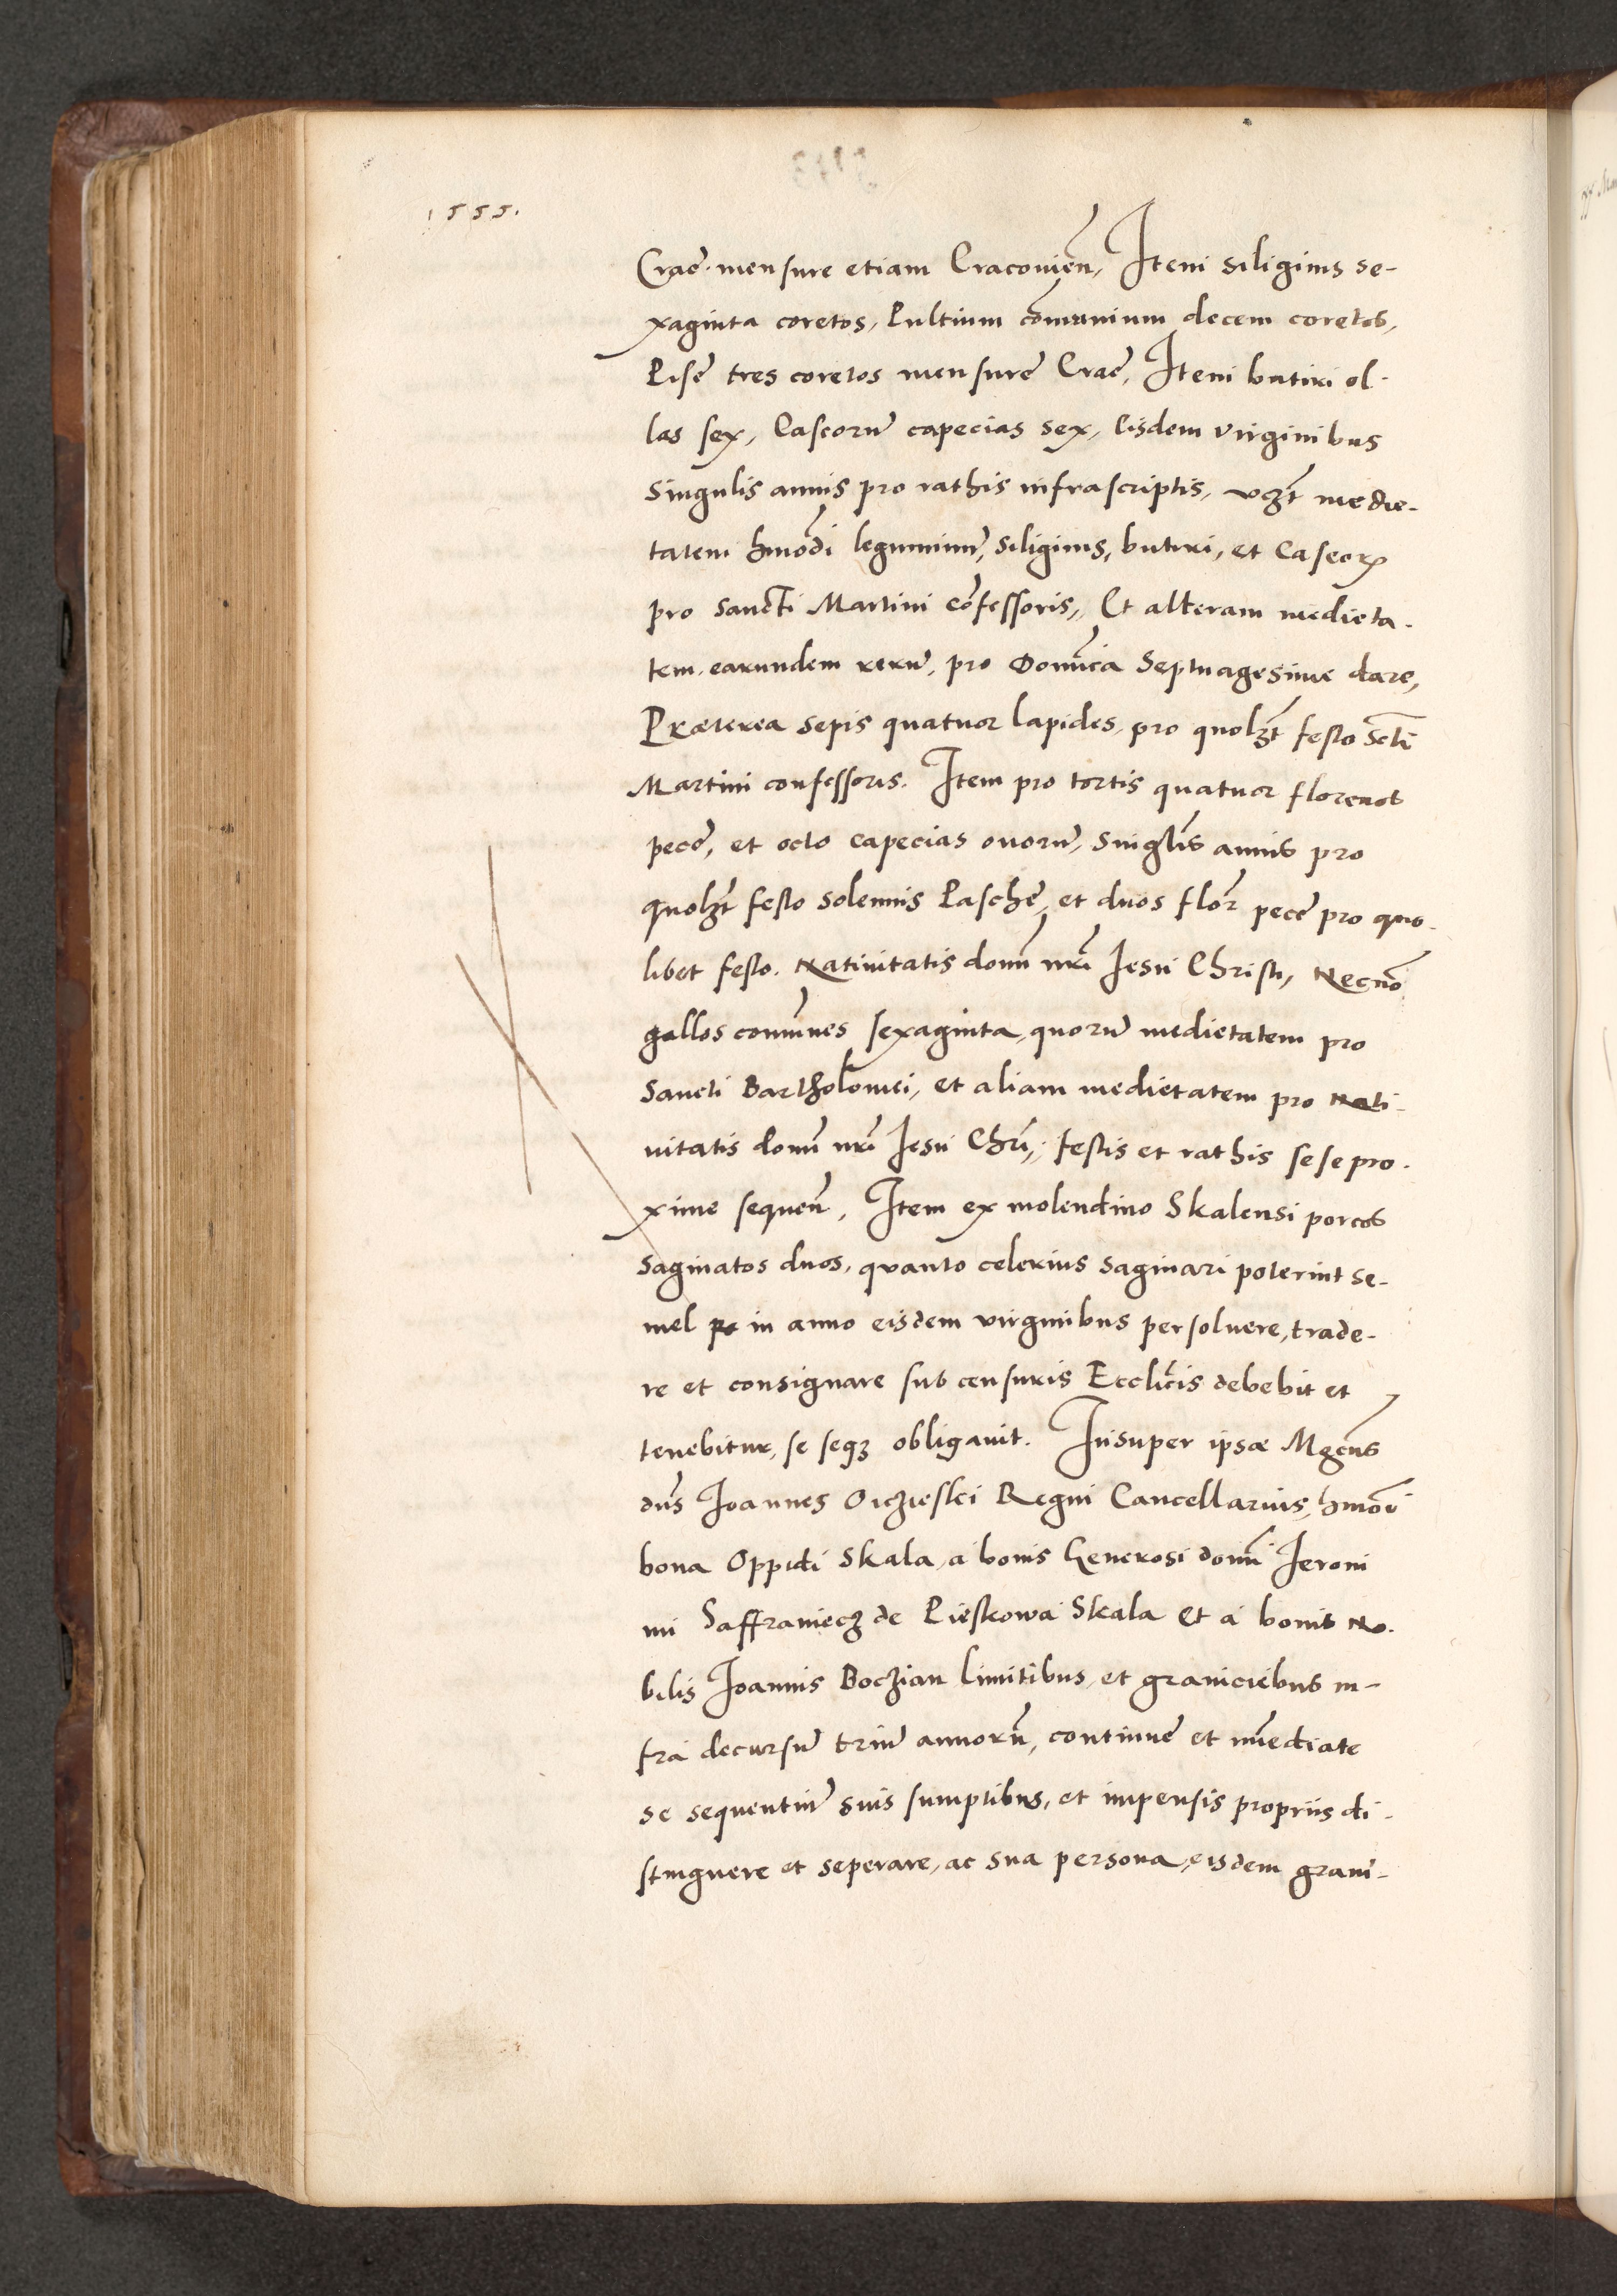 1555.
Crac̄. mensure etiam Cracovien̄, Item siliginis se-
xaginta coretos, Pultium com̄unium decem coretos,
Pisē tres coretos mensurē Crac̄, Item butiri ol-
las sex, Caseorū capecias sex, Eisdem virginibus
singulis annis pro rathis infrascriptis, vcꝫt medie-
tatem hmōdi leguminū, siliginis, butiri, et Caseoꝝ
pro sancti Martini cōfessoris, Et alteram medieta-
tem earundem rerū, pro Domīca Septuagesime dare,
Præterea sepis quatuor lapides, pro quolꝫt festo Scti
Martini confessoris. Item pro tortis quatuor florenos
pecē, et octo capecias ovorū, singlis annis pro
quolꝫt festo solennis Paschē, et duos flor̄ pecē pro quo-
libet festo Nativitatis domī nrī Jesu Christi, Necnō
gallos com̄unes sexaginta, quorū medietatem pro
Sancti Bartholomei, et aliam medietatem pro Nati-
vitatis domī nrī Jesu Chrī, festis et rathis sese pro-
xime sequen̄, Item ex molendino Skalensi porcos
saginatos duos, quanto celerius saginari poterint se-
mel in anno eisdem virginibus persolvere, trade-
re et consignare sub censuris Ecclīcis debebit et
tenebitur, se seqꝫ obligavit. Insuper ipsæ Mgcūs
dn̄s Joannes Oczieski Regni Cancellarius, hmōi
bona Oppidi Skala, a bonis Generosi domī Jeroni
mi Saffraniecz de Pieskowa Skala et a bonis No-
bilis Joannis Boczian limitibus et graniciebus in-
fra decursū triū annorū, continuē et im̄ediate
se sequentiū suis sumptibus, et impensis propriis di-
stinguere et seperare, ac sua persona, eisdem grani-